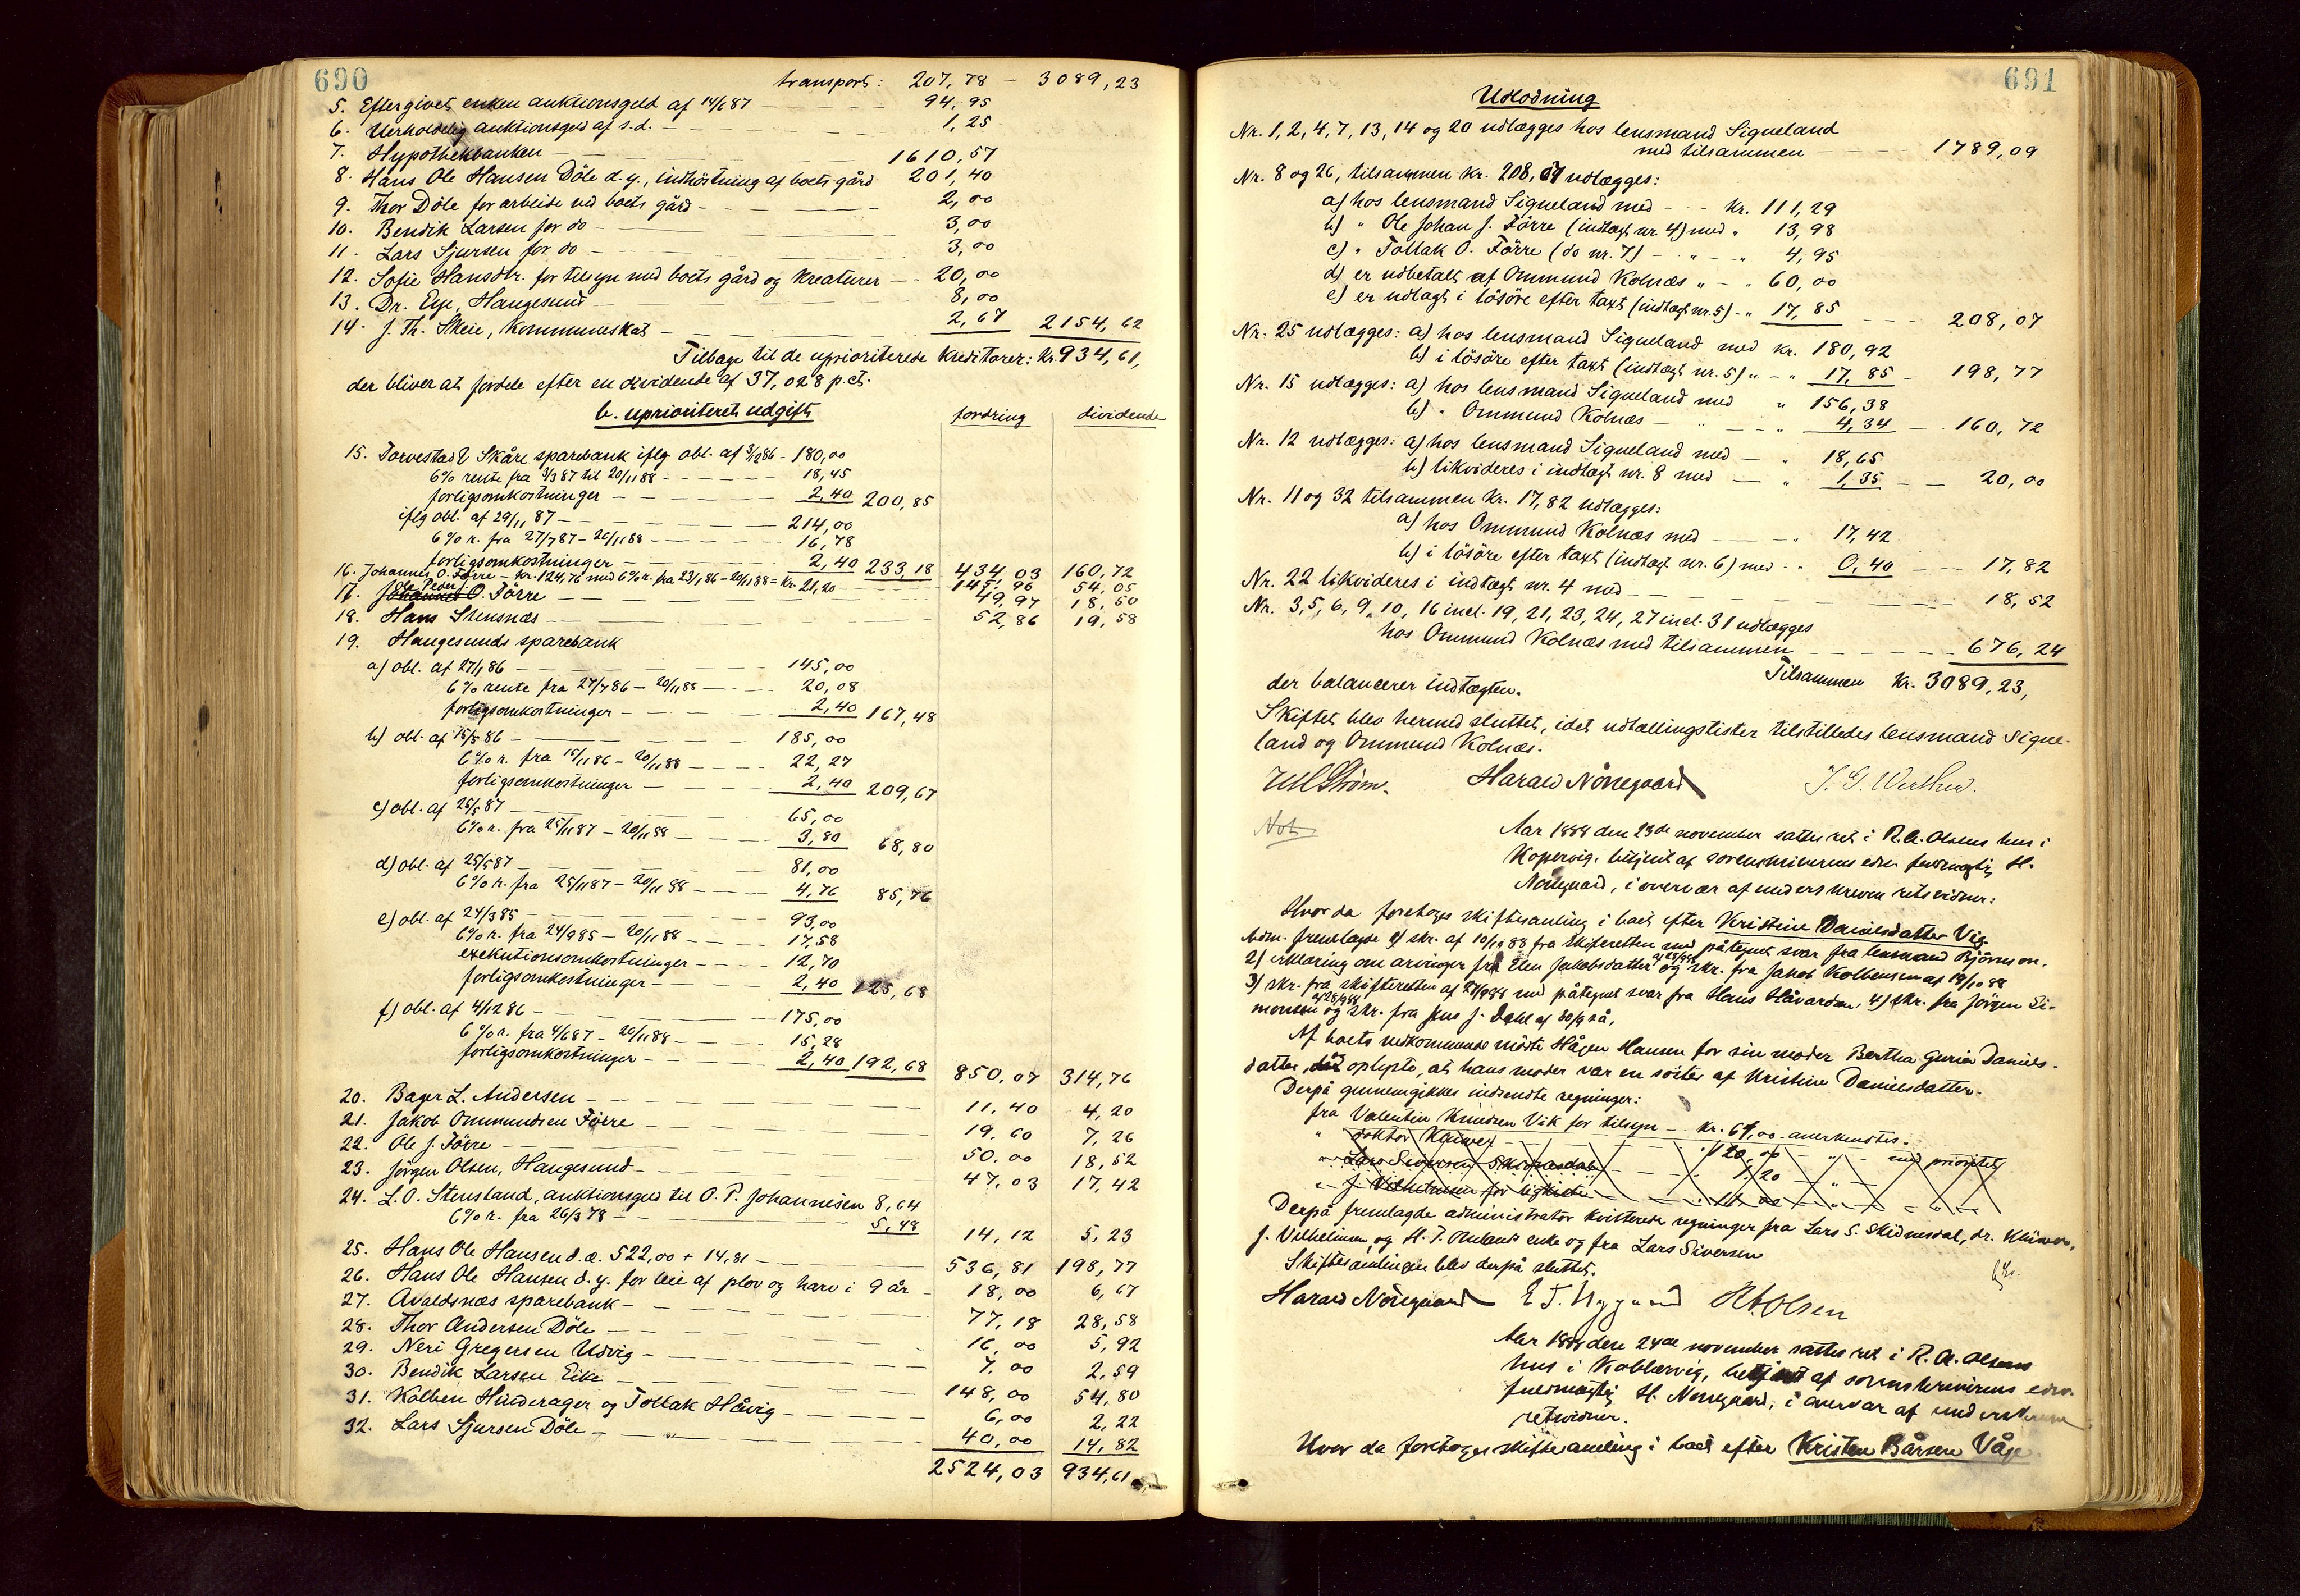 690
transport: 207,78 — 3089,23
5. Eftergivet enken auktionsgeld af 14/6 87 — 94,95
6. Uerholdelig auktionsgeld af s.d. — 1,25
7. Hypothekbanken — 1610,57
8. Hans Ole Hansen Döle d.y., indhöstning af boets gård 201,40
9. Thor Döle for arbeide ved boets gård — 2,00
10. Bendik Larsen for do — 3,00
11. Lars Sjursen for do — 3,00
12. Sofie Hansdtr. for tilsyn med boets gård og kreaturer — 20,00
13. Dr. Eye, Haugesund — 8,00
14. J. Th. Skeie, kommuneskat — 2,67 2154,62
Tilbage til de uprioriterede kreditorer: kr. 934,61,
der bliver at fordele efter en dividende af 37,028 p.ct.
b. uprioriteret udgift fordring dividende
15. Torvestad & Skåre sparebank iflg obl. af 3/2 86 — 180,00
6% rente fra 3/3 87 til 20/11 88 — 18,45
forligsomkostninger — 2,40 200,85
iflg obl. af 29/11 87 — 214,00
6% r. fra 27/7 87 — 20/11 88 — 16,78
forligsomkostninger — 2,40 233,18 434,03 160,72
16. Johannes O. Förre — kr. 124,76 med 6% r. fra 23/1 86 — 20/11 88 = kr. 21,20 — 145,96 54,05
17. Ole Peder J. Johannes O. Förre — 49,97 18,50
18. Hans Stensnæs — 52,86 19,58
19. Haugesunds sparebank
a) obl. af 27/1 86 — 145,00
6% rente fra 27/7 86 — 20/11 88 — 20,08
forligsomkostninger — 2,40 167,48
b) obl. af 15/5 86 — 185,00
6% r. fra 15/11 86 — 20/11 88 — 22,27
forligsomkostninger — 2,40 209,67
c) obl. af 25/5 87 — 65,00
6% r. fra 25/11 87 — 20/11 88 — 3,80 68,80
d) obl. af 25/5 87 — 81,00
6% r. fra 25/11 87 — 20/11 88 — 4,76 85,76
e) obl. af 24/3 85 — 93,00
6% r. fra 24/9 85 — 20/11 88 — 17,58
exekutionsomkostninger — 12,70
forligsomkostninger — 2,40 125,68
f) obl. af 4/12 86 — 175,00
6% r. fra 4/6 87 — 20/11 88 — 15,28
forligsomkostninger — 2,40 192,68 850,07 314,76
20. Bager L. Andersen — 11,40 4,20
21. Jakob Ommundsen Förre — 19,60 7,26
22. Ole J. Förre — 50,00 18,52
23. Jörgen Olsen, Haugesund — 47,03 17,42
24. L.O. Stensland, auktionsgeld til O.P. Johannesen 8,64
6% r. fra 26/3 78 — 5,48 14,12 5,23
25. Hans Ole Hansen d.æ. 522,00 + 14,81 — 536,81 198,77
26. Hans Ole Hansen d.y. for leie af plov og harv i 9 år — 18,00 6,67
27. Avaldsnæs sparebank — 77,18 28,58
28. Thor Andersen Döle — 16,00 5,92
29. Neri Gregersen Udvig — 7,00 2,59
30. Bendik Larsen Eike — 148,00 54,80
31. Kolben Hinderager og Tollak Håvig — 6,00 2,22
32. Lars Sjursen Döle — 40,00 14,82
2524,03 934,61
691
Udlodning
Nr. 1, 2, 4, 7, 13, 14 og 20 udlægges hos lensmand Siqueland
med tilsammen — 1789,09
Nr. 8 og 26, tilsammen kr. 208,07 udlægges:
a) hos lensmand Siqueland med — kr. 111,29
b) " Ole Johan J. Förre (indtægt nr. 4) med " 13,98
c) " Tollak O. Förre (do nr. 7) — " — " 4,95
d) er udbetalt af Ommund Kolnæs " — " 60,00
e) er udlagt i lösöre efter taxt (indtægt nr. 5) — " 17,85 — 208,07
Nr. 25 udlægges: a) hos lensmand Siqueland med kr. 180,92
b) i lösöre efter taxt (indtægt nr. 5) " — " 17,85 — 198,77
Nr. 15 udlægges: a) hos lensmand Siqueland med " 156,38
b) " Ommund Kolnæs — " — " 4,34 — 160,72
Nr. 12 udlægges: a) hos lensmand Siqueland med — " 18,65
b) likvideres i indtægt nr. 8 med — " 1,35 — 20,00
Nr. 11 og 32 tilsammen kr. 17,82 udlægges:
a) hos Ommund Kolnæs med — " 17,42
b) i lösöre efter taxt (indtægt nr. 6) med " 0,40 — 17,82
Nr. 22 likvideres i indtægt nr. 4 med — 18,52
Nr. 3, 5, 6, 9, 10, 16 incl. 19, 21, 23, 24, 27 incl. 31 udlægges
hos Ommund Kolnæs med tilsammen — 676,24
Tilsammen kr. 3089,23,
der balancerer indtægten.
Skiftet blev hermed sluttet, idet udtællingslister tilstilledes lensmand Sique-
land og Ommund Kolnæs.
Harald Nörregaard
Not
Aar 1888 den 23de november sattes ret i R.A. Olsens hus i
Kopervig, betjent af sorenskriverens edsv. fuldmægtig H.
Nörregaard, i overvær af underskrevne retsvidner:
Hvor da foretoges skiftesamling i boet efter Kristine Danielsdatter Vig.
Adm. fremlagde 1) skr. af 10/10 88 fra skifteretten med påtegnet svar fra lensmand Björnson.
2) erklæring om arvinger fra Elen Jakobsdatter og skr. fra Jakob Kolbensen af 19/10 88
3) skr. fra skifteretten af 27/9 88 med påtegnet svar fra Hans Håvardsen, 4) skr. fra Jörgen Si-
monsen af 28/9 88 og skr. fra Jens J. Dahl af 30/9 s.å.
Af boets vedkommende mödte Hågen Hansen for sin moder Bertha Guria Daniels-
datter, oplyste, at hans moder var en söster af Kristine Danielsdatter.
Derpå gjennemgikkes indsendte regninger:
fra Valentin Knudsen Vik for tilsyn — kr. 64,00 anerkendtes.
" doktor Kaurex — " 120,00 — " — med prioritet
" Lars Siversen Skidnesdal — " 1,20 — "
" J. Vilhelmsen for ligkiste —
Derpå fremlagde administrator kvitterede regninger fra Lars S. Skidnesdal, dr.
J. Vilhelmsen, og H. T. enke og fra Lars Siversen
Skiftesamlingen blev derpå sluttet.
Harald Nörregaard E. T. Nygaard R A Olsen
Aar 1888 den 24de november sattes ret i R.A. Olsens
hus i Kobbervig, betjent af sorenskriverens edsv.
fuldmægtig H. Nörregaard, i overvær af underskrevne
retsvidner.
Hvor da foretoges skiftesamling i boet efter Kristen Bårsen Våge